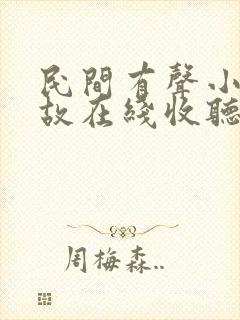 民間有聲小
故在綫收聽
周梅森..